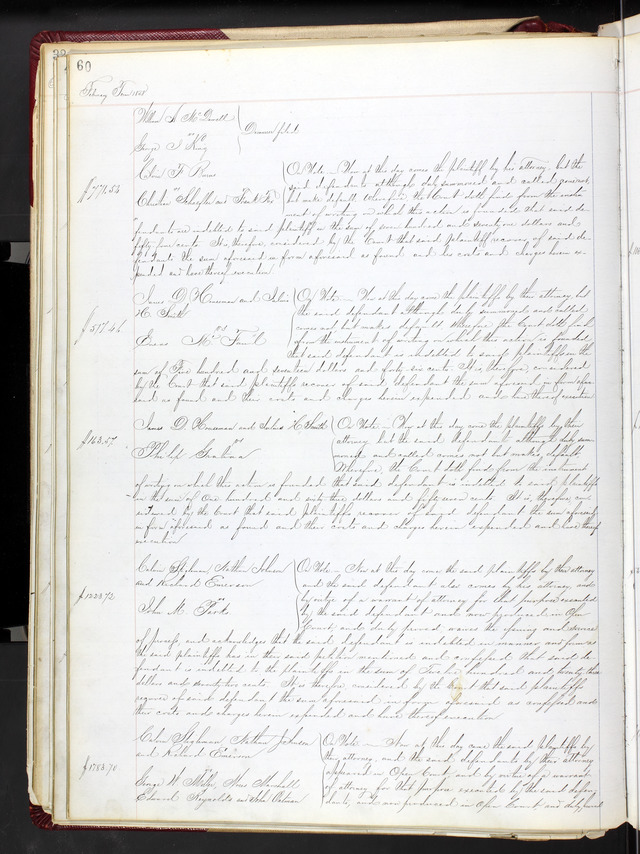 32
60
February Term 1858
William A McDowell
vs
George I King
Demurrer filed
Calvin F Burns
vs
Charles Schaffer and Frank
$771.54
On Note — Now at this day came the plaintiff by his attorney, but the
said defendants although duly summoned and called come not,
but make default. Wherefore the Court doth find from the instru-
ment of writing on which this action is founded that said de-
fendants are indebted to said plaintiff in the sum of seven hundred and seventy one dollars and
fifty four cents. It is therefore considered by the Court that said plaintiff recover of said de-
fendants the sum aforesaid in form aforesaid as found and his costs and charges herein ex-
pended and have thereof execution
James D. and Julius
H. Smith
vs
$517.46
On Note — Now at this day came the plaintiffs by their attorney, but
the said defendant although duly summoned and called
comes not but makes default. Wherefore the Court doth find
from the instrument of writing on which this action is founded
that said defendant is indebted to said plaintiffs in the
sum of Five hundred and seventeen dollars and forty six cents. It is therefore considered
by the Court that said plaintiffs recover of said defendant the sum aforesaid in form afore-
said as found and their costs and charges herein expended and have thereof execution
James D. and Julius H Smith
vs
Philip
$163.57
On Note — Now at this day came the plaintiffs by their
attorney but the said defendant although duly sum-
moned and called comes not but makes default
Wherefore, the Court doth find from the instrument
of writing on which this action is founded that said defendant is indebted to said plaintiffs
in the sum of One hundred and sixty three dollars and fifty seven cents. It is, therefore, con-
sidered by the Court that said plaintiffs recover of said defendant the sum aforesaid
in form aforesaid as found and their costs and charges herein expended and have thereof
execution
Calvin Nathan Johnson
and Richard Emerson
vs
John M. Parks
$1223.72
On Note — Now at this day came the said plaintiffs by their attorney
and the said defendant also comes by his attorney and
by virtue of a warrant of attorney for that purpose executed
by the said defendant and now produced in Open
Court, and duly proved waives the issuing and service
of process, and acknowledges that the said defendant is indebted in manner and form as
the said plaintiffs has in their said petition mentioned and confessed that said de-
fendant is indebted to the plaintiffs in the sum of Twelve hundred and twenty three
dollars and seventy two cents. It is therefore considered by the Court that said plaintiffs
recover of said defendant the sum aforesaid in form aforesaid as confessed and
their costs and charges herein expended and have thereof execution
Calvin Nathan Johnson
and Richard Emerson
vs
George W. Miller, Marshall
Edward Reynolds and John
$1783.70
On Note — Now at this day came the said plaintiffs by
their attorney and the said defendants by their attorney
appeared in Open Court, and by virtue of a warrant
of attorney for that purpose executed by the said defen-
dants, and now produced in Open Court and duly proved